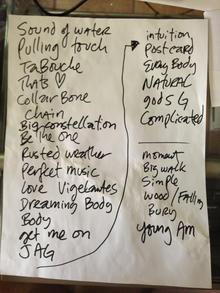 Sound of water
Pulling touch
Tabouche
Thats ♡
Collar Bone
Chain
Big constellation
Be the one
Rusted weather
Perfect music
Love Vigelantes
Dreaming Body
Body
get me on
JAG
intuition
Postcard
Every Body
NATURAL
gods G
Complicated
moment
Big walk
Simple
wood / Falling
Bury
young Am